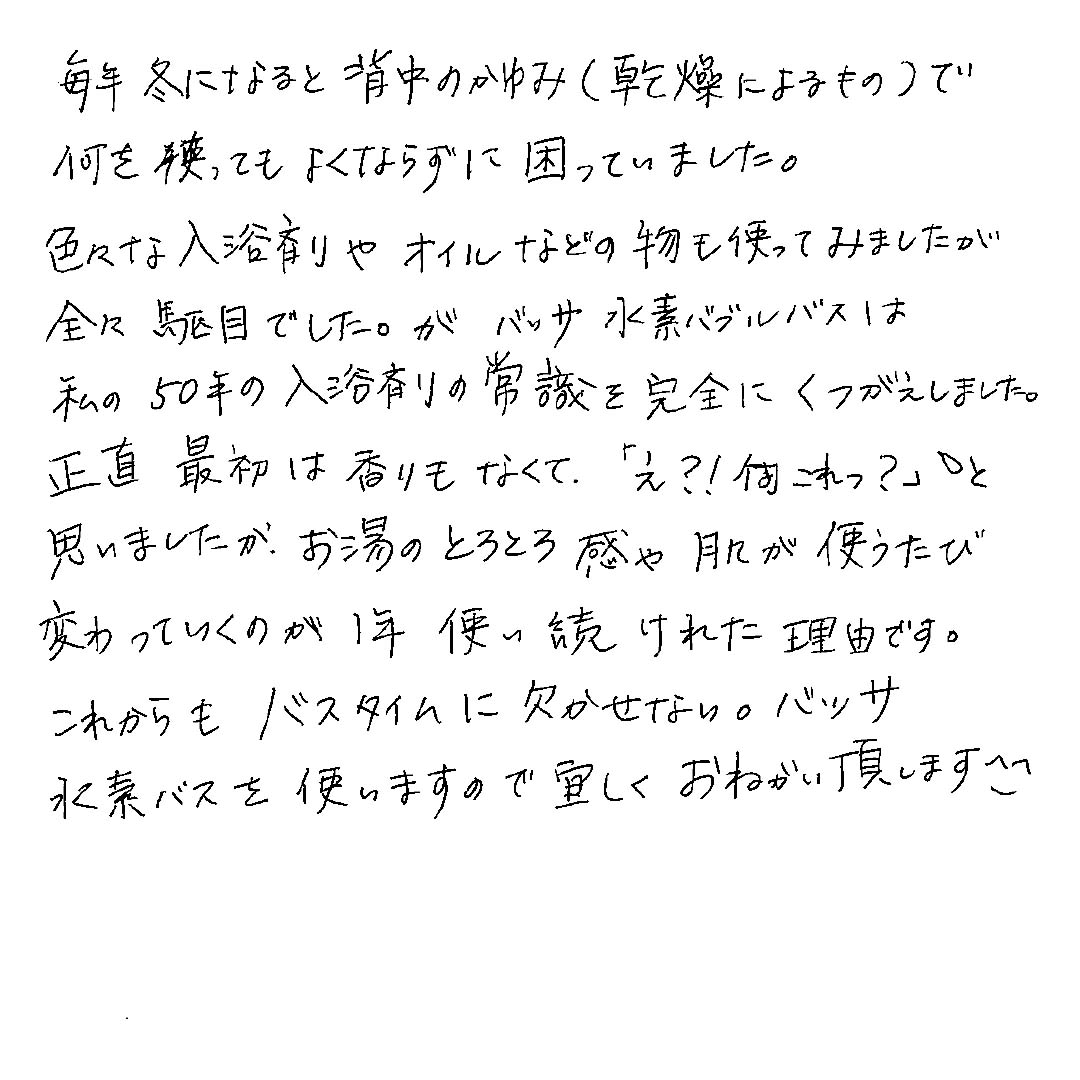 毎年 冬になると 背中のかゆみ(乾燥によるもの)で
何を使ってもよくならずに 困っていました。
色々な入浴剤や オイルなどの物も使ってみましたが
全々 駆目でした。が バッサ 水素バブルバスは
私の 50年の 入浴剤の常識を 完全に くつがえしました。
正直 最初は 香りも なくて、「え?! 何これっ?」と
思いましたが、お湯の とろとろ 感や 肌が 使うたび
変わっていくのが 1年 使い 続けれた 理由です。
これからも バスタイムに 欠かせない。バッサ
水素バスを 使いますので 宜しく おねがい頂します^^